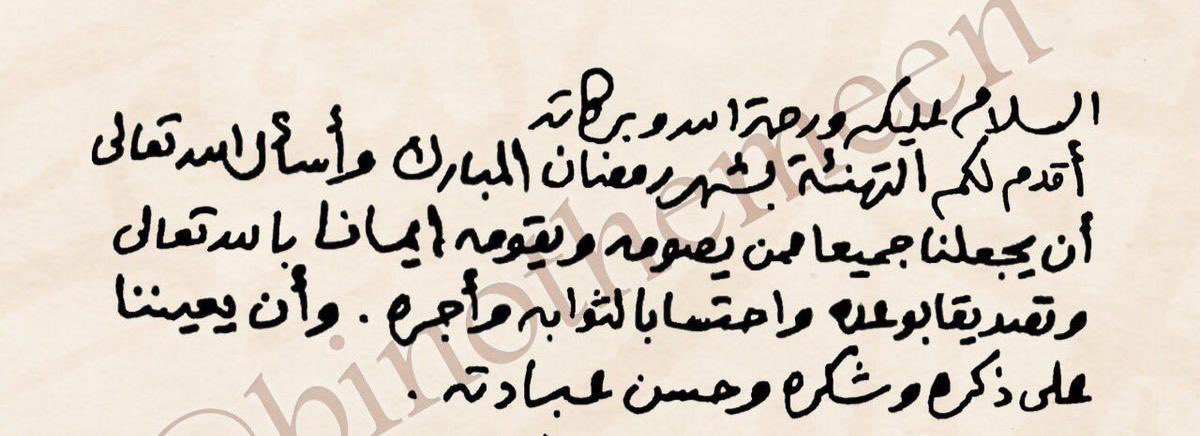 السلام عليكم ورحمة الله وبركاته
أقدم لكم التهنئة بشهر رمضان المبارك وأسأل الله تعالى
أن يجعلنا جميعا ممن يصومه ويقومه إيمانا بالله تعالى
وتصديقا بوعده واحتسابا لثوابه وأجره . وأن يعيننا
على ذكره وشكره وحسن عبادته .
@binothemeen